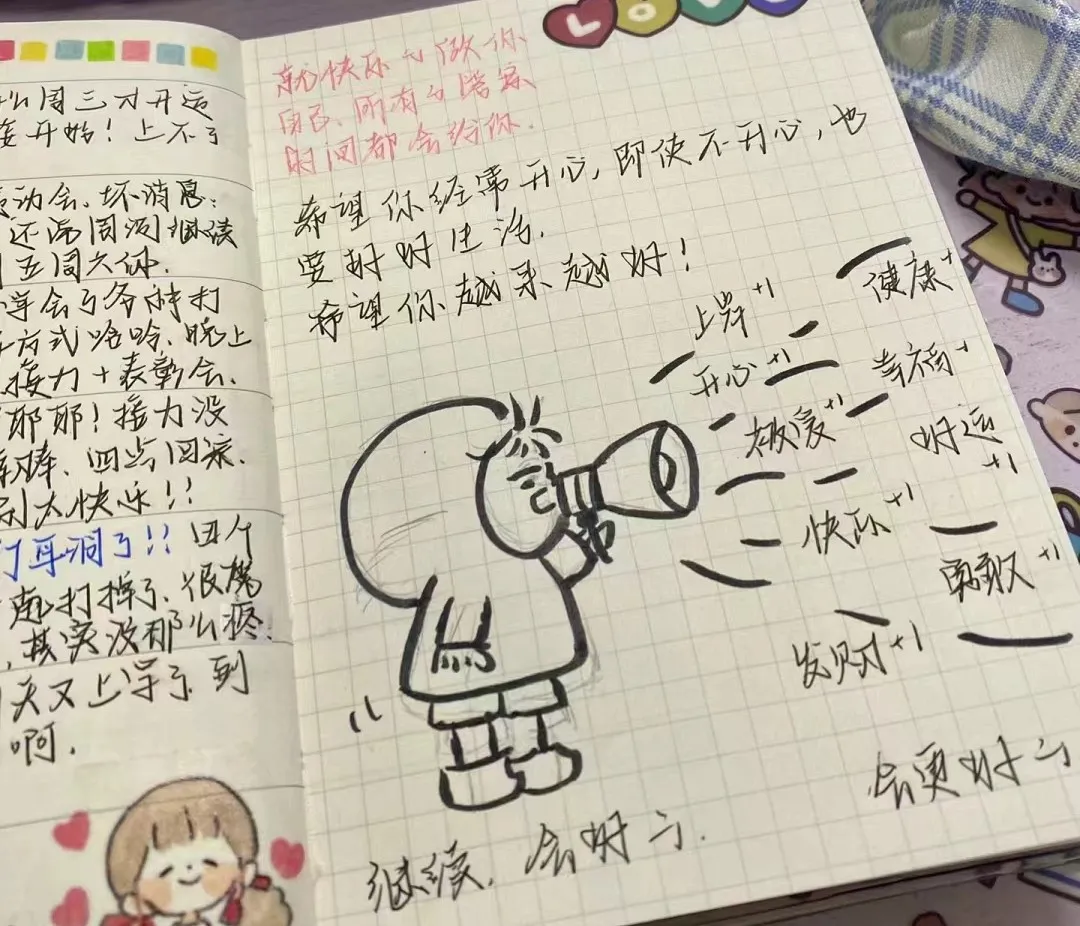 周三才开运
开始！上不了
动会、坏消息：
还需周日继续
五周六休.
学会了各种打
方式哈哈、晚上
接力+表彰会.
耶耶！接力没
棒、四点回家.
太快乐!!
打耳洞了!! 四个
打掉了、很
,其实没那么疼.
天又上学了、到
啊.
LOVE
就快乐的做你
自己、所有的答案
时间都会给你.
希望你经常开心,即使不开心,也
要好好生活.
希望你越来越好！
上岸+1
健康+1
开心+1
幸福+1
被爱+1
好运+1
快乐+1
勇敢+1
发财+1
会更好的
继续，会好的.